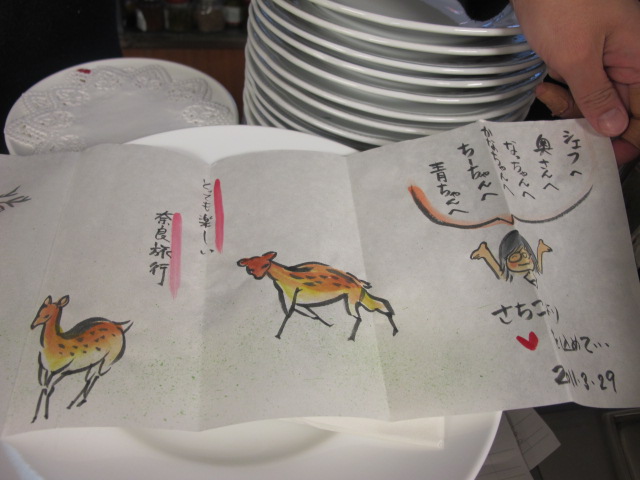 シェフへ
奥さんへ
なっちゃんへ
ちーちゃんへ
青ちゃんへ
さちこより
♥込めて…
2011.3.29
とっても楽しい
奈良旅行